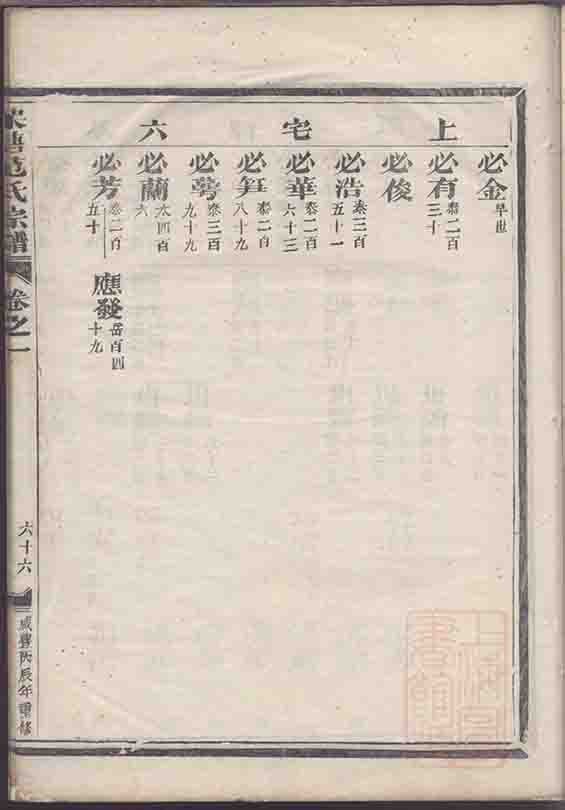 上宅六
必金 早世
必有 泰二百三十
必俊
必浩 泰三百五十一
必華 泰二百六十三
必笄 泰二百八十九
必蕚 泰三百九十九
必蘭 太四百六
必芳 泰二百五十
應發 岳百四十九
范氏宗譜
卷之一
六十六
咸豐丙辰年重修
上海圖書館藏